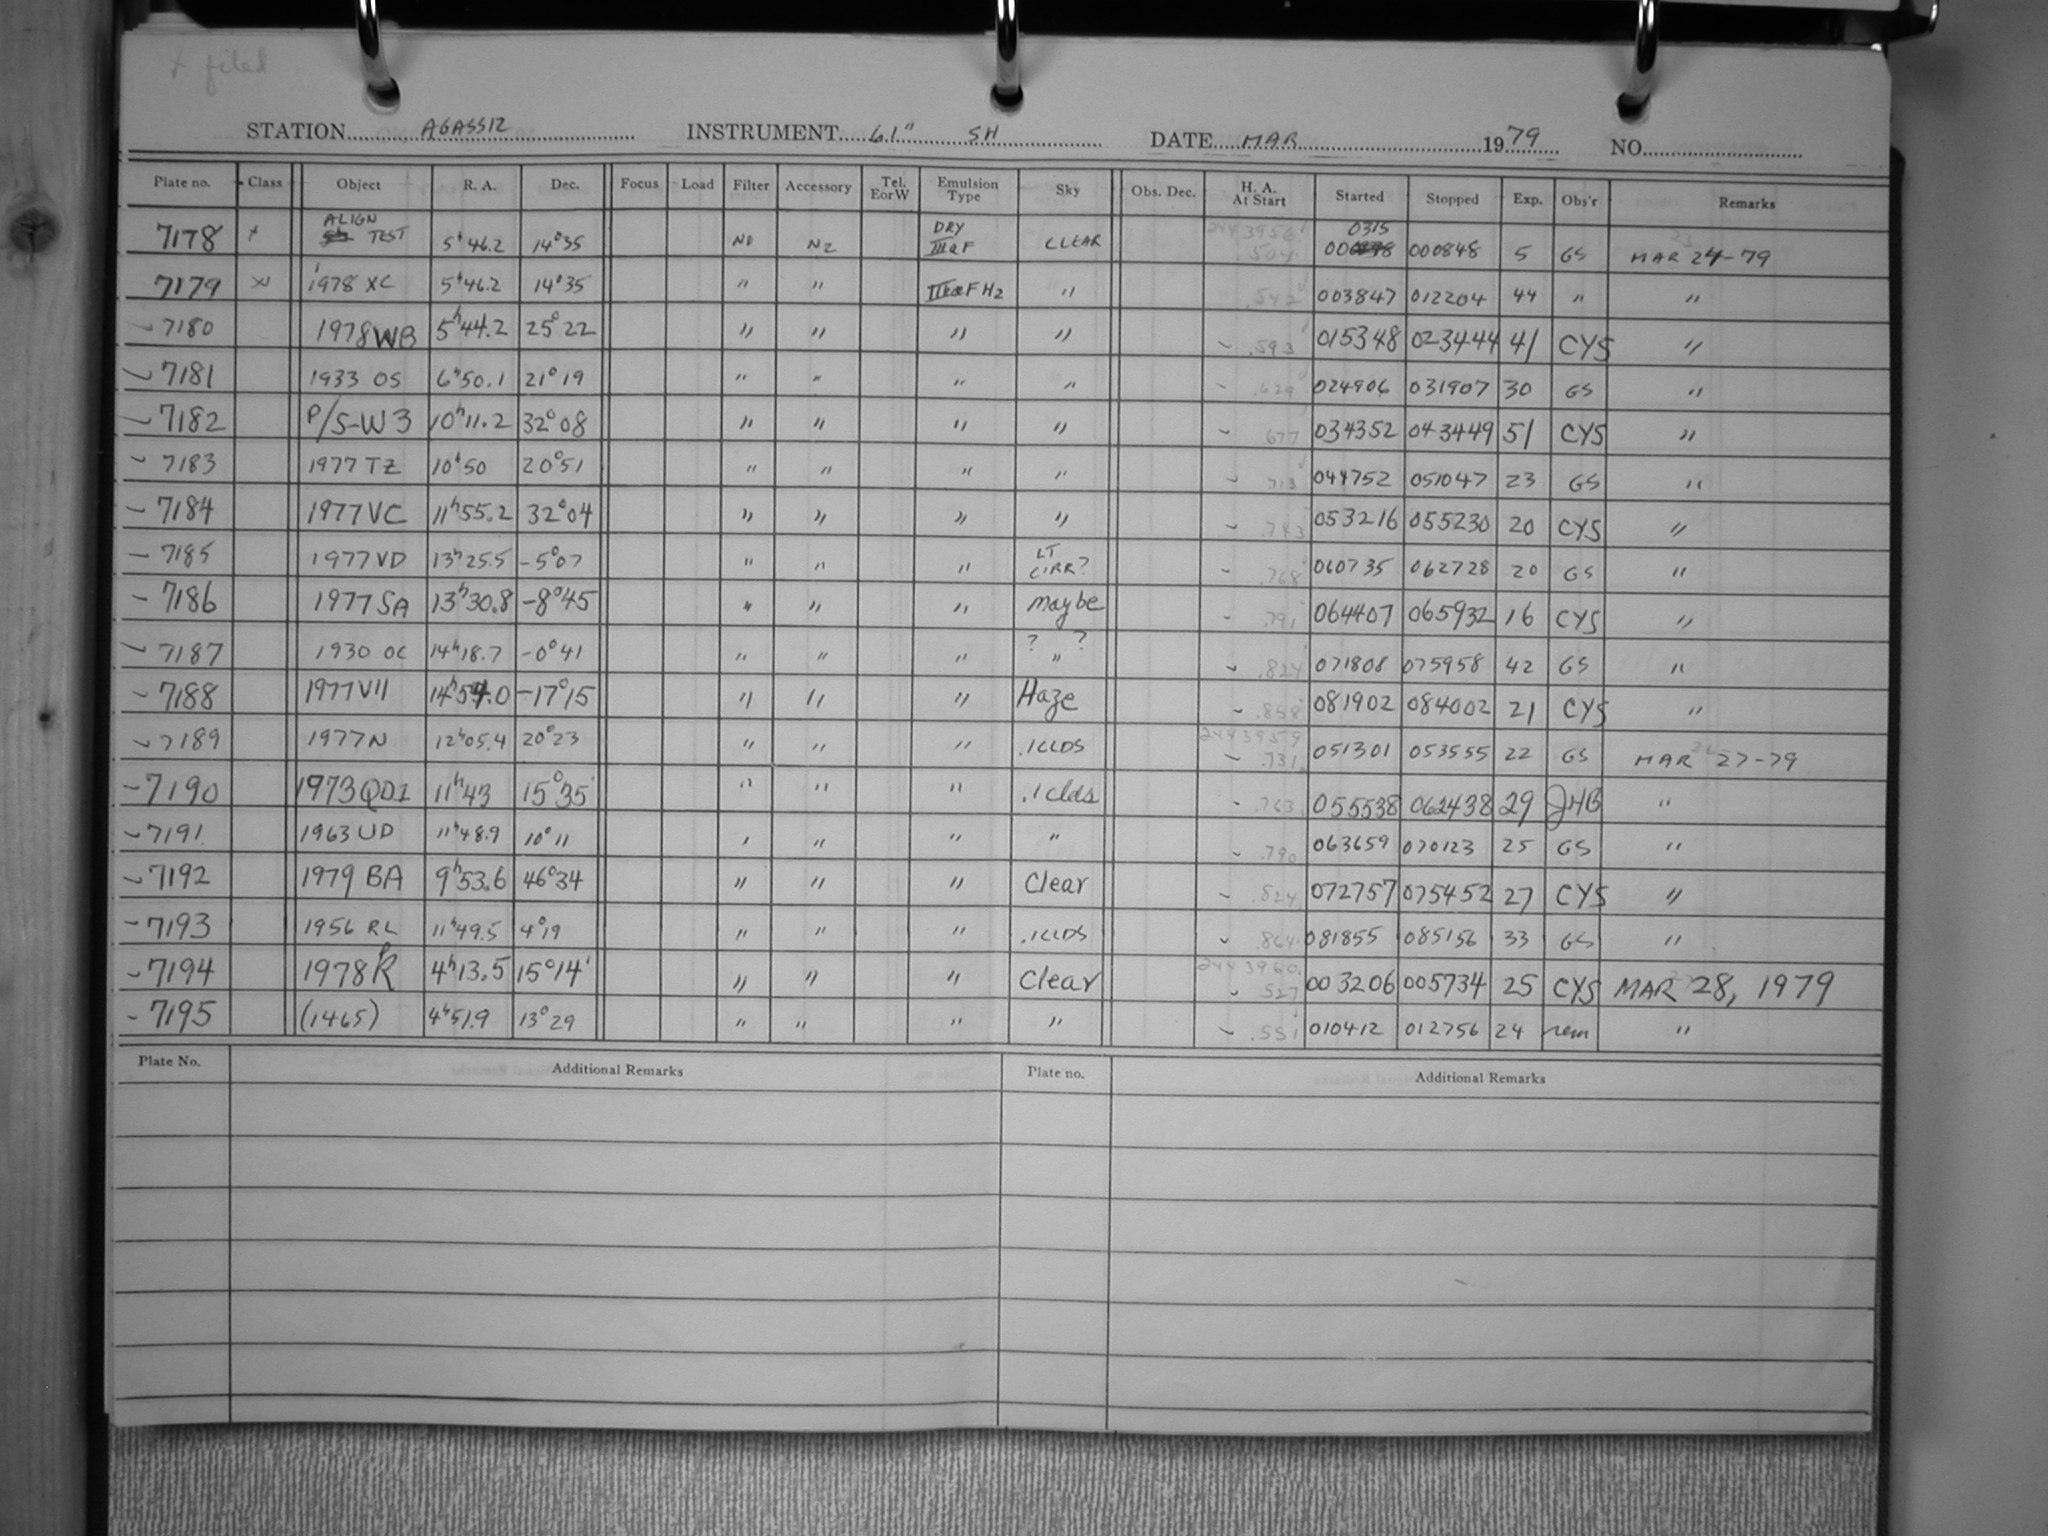 + filed
STATION AGASSIZ INSTRUMENT 61" SH DATE MAR 1979 NO.
Plate no. Class Object R. A. Dec. Focus Load Filter Accessory Tel. EorW Emulsion Type Sky Obs. Dec. H. A. At Start Started Stopped Exp. Obs'r Remarks
7178 + ALIGN TEST 5h46.2 14°35 NO N2 DRY IIIaF CLEAR 2443956. .504 000315 000848 5 GS MAR 24-79
7179 x 1978 XC 5h46.2 14°35 " " IIIaF H2 " .542 003847 012204 44 " "
- 7180 1978WB 5h44.2 25°22 " " " " - .593 015348 023444 41 CYS "
- 7181 1933 OS 6h50.1 21°19 " " " " - .629 024906 031907 30 GS "
- 7182 P/S-W3 10h11.2 32°08 " " " " - .677 034352 043449 51 CYS "
- 7183 1977 TZ 10h50 20°51 " " " " - .713 044752 051047 23 GS "
- 7184 1977VC 11h55.2 32°04 " " " " - .743 053216 055230 20 CYS "
- 7185 1977VD 13h25.5 -5°07 " " " LT CIRR? - .768 060735 062728 20 GS "
- 7186 1977SA 13h30.8 -8°45 " " " maybe - .791 064407 065932 16 CYS "
- 7187 1930 OC 14h18.7 -0°41 " " " ? " ? - .824 071808 075958 42 GS "
- 7188 1977VII 14h54.0 -17°15 " " " Haze - .858 081902 084002 21 CYS "
- 7189 1977N 12h05.4 20°23 " " " .1CLDS 2443959 - .731 051301 053555 22 GS MAR 27-79
- 7190 1973QD1 11h43 15°35' " " " .1clds - .763 055538 062438 29 JHB "
- 7191 1963UD 11h48.9 10°11 ' " " " - .790 063659 070123 25 GS "
- 7192 1979 BA 9h53.6 46°34 " " " Clear - .824 072757 075452 27 CYS "
- 7193 1956 RL 11h49.5 4°19 " " " .1CLDS - .864 081855 085156 33 GS "
- 7194 1978R 4h13.5 15°14' " " " Clear 2443960. - .527 003206 005734 25 CYS MAR 28, 1979
- 7195 (1465) 4h51.9 13°29 " " " " - .551 010412 012756 24 rem "
Plate No. Additional Remarks Plate no. Additional Remarks